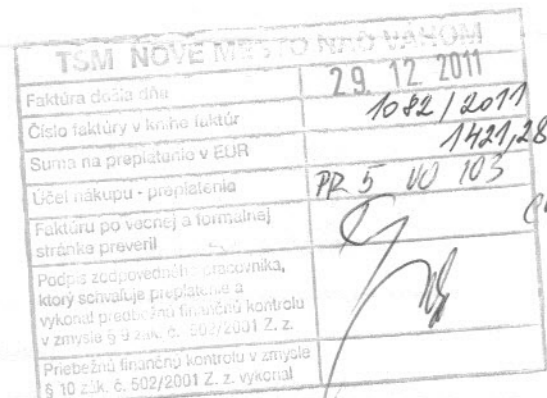 TSM NOVE MESTO NAD VÁHOM
Faktúra došla dňa 29. 12. 2011
Číslo faktúry v knihe faktúr 1082/2011
Suma na preplatenie v EUR 1421,28
Účel nákupu - preplatenia PR 5 VO 103
Faktúru po vecnej a formálnej
stránke preveril
Podpis zodpovedného pracovníka,
ktorý schvaľuje preplatenie a
vykonal predbežnú finančnú kontrolu
v zmysle § 9 zák. č. 502/2001 Z. z.
Priebežnú finančnú kontrolu v zmysle
§ 10 zák. č. 502/2001 Z. z. vykonal